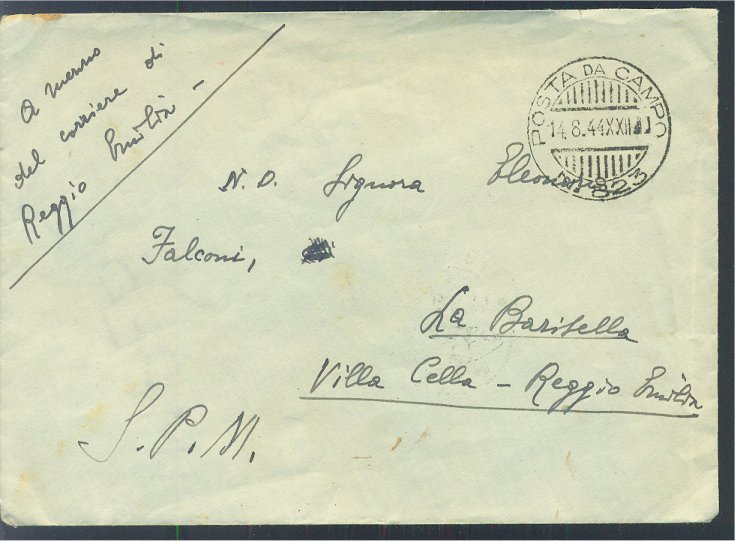 A mezzo
del corriere di
Reggio Emilia –
POSTA DA CAMPO
14.8.44 XXII
N. 823
N. D. Signora Eleonora
Falconi,
La Barisella
Villa Cella – Reggio Emilia
S. P. M.